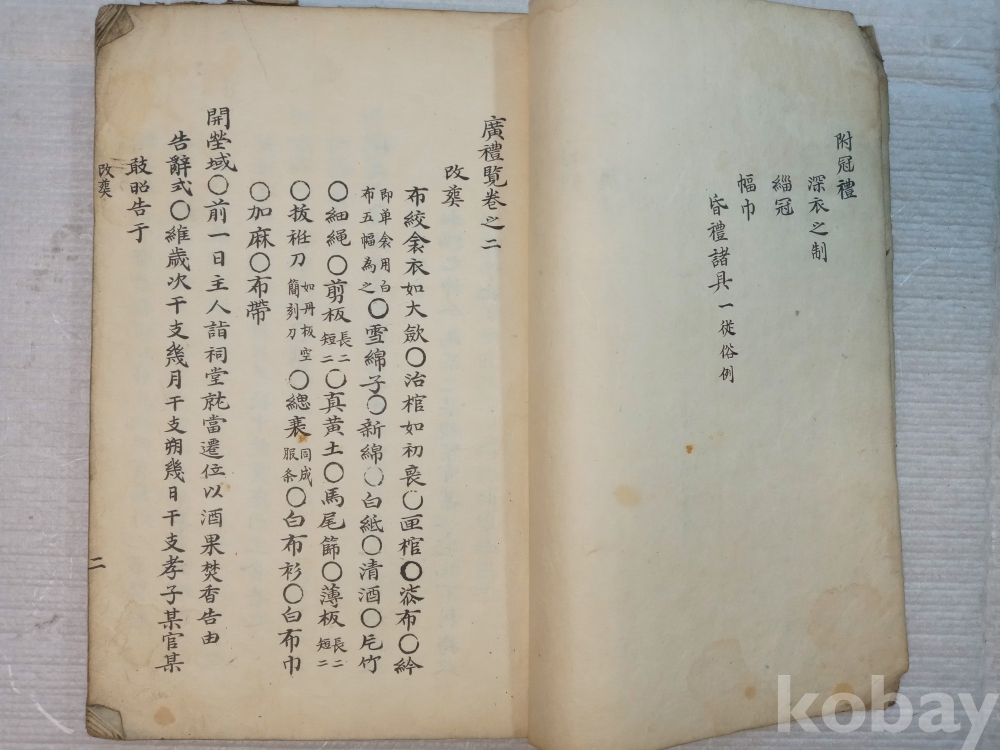 附冠禮
深衣之制
緇冠
幅巾
昏禮諸具一從俗例
廣禮覽卷之二
改葬
布絞衾衣如大斂〇治棺如初喪〇匣棺〇漆布〇紟
即单衾用白布五幅為之〇雪綿子〇新綿〇白紙〇清酒〇片竹
〇細繩〇剪板長二短二〇真黄土〇馬尾篩〇薄板長二短二
〇拔袵刀如丹板空簡刻刀〇緦裹同成服条〇白布衫〇白布巾
〇加麻〇布帶
開塋域〇前一日主人詣祠堂就當遷位以酒果焚香告由
告辭式〇維歳次干支幾月干支朔幾日干支孝子某官某
敢昭告于
改葬
二
kobay